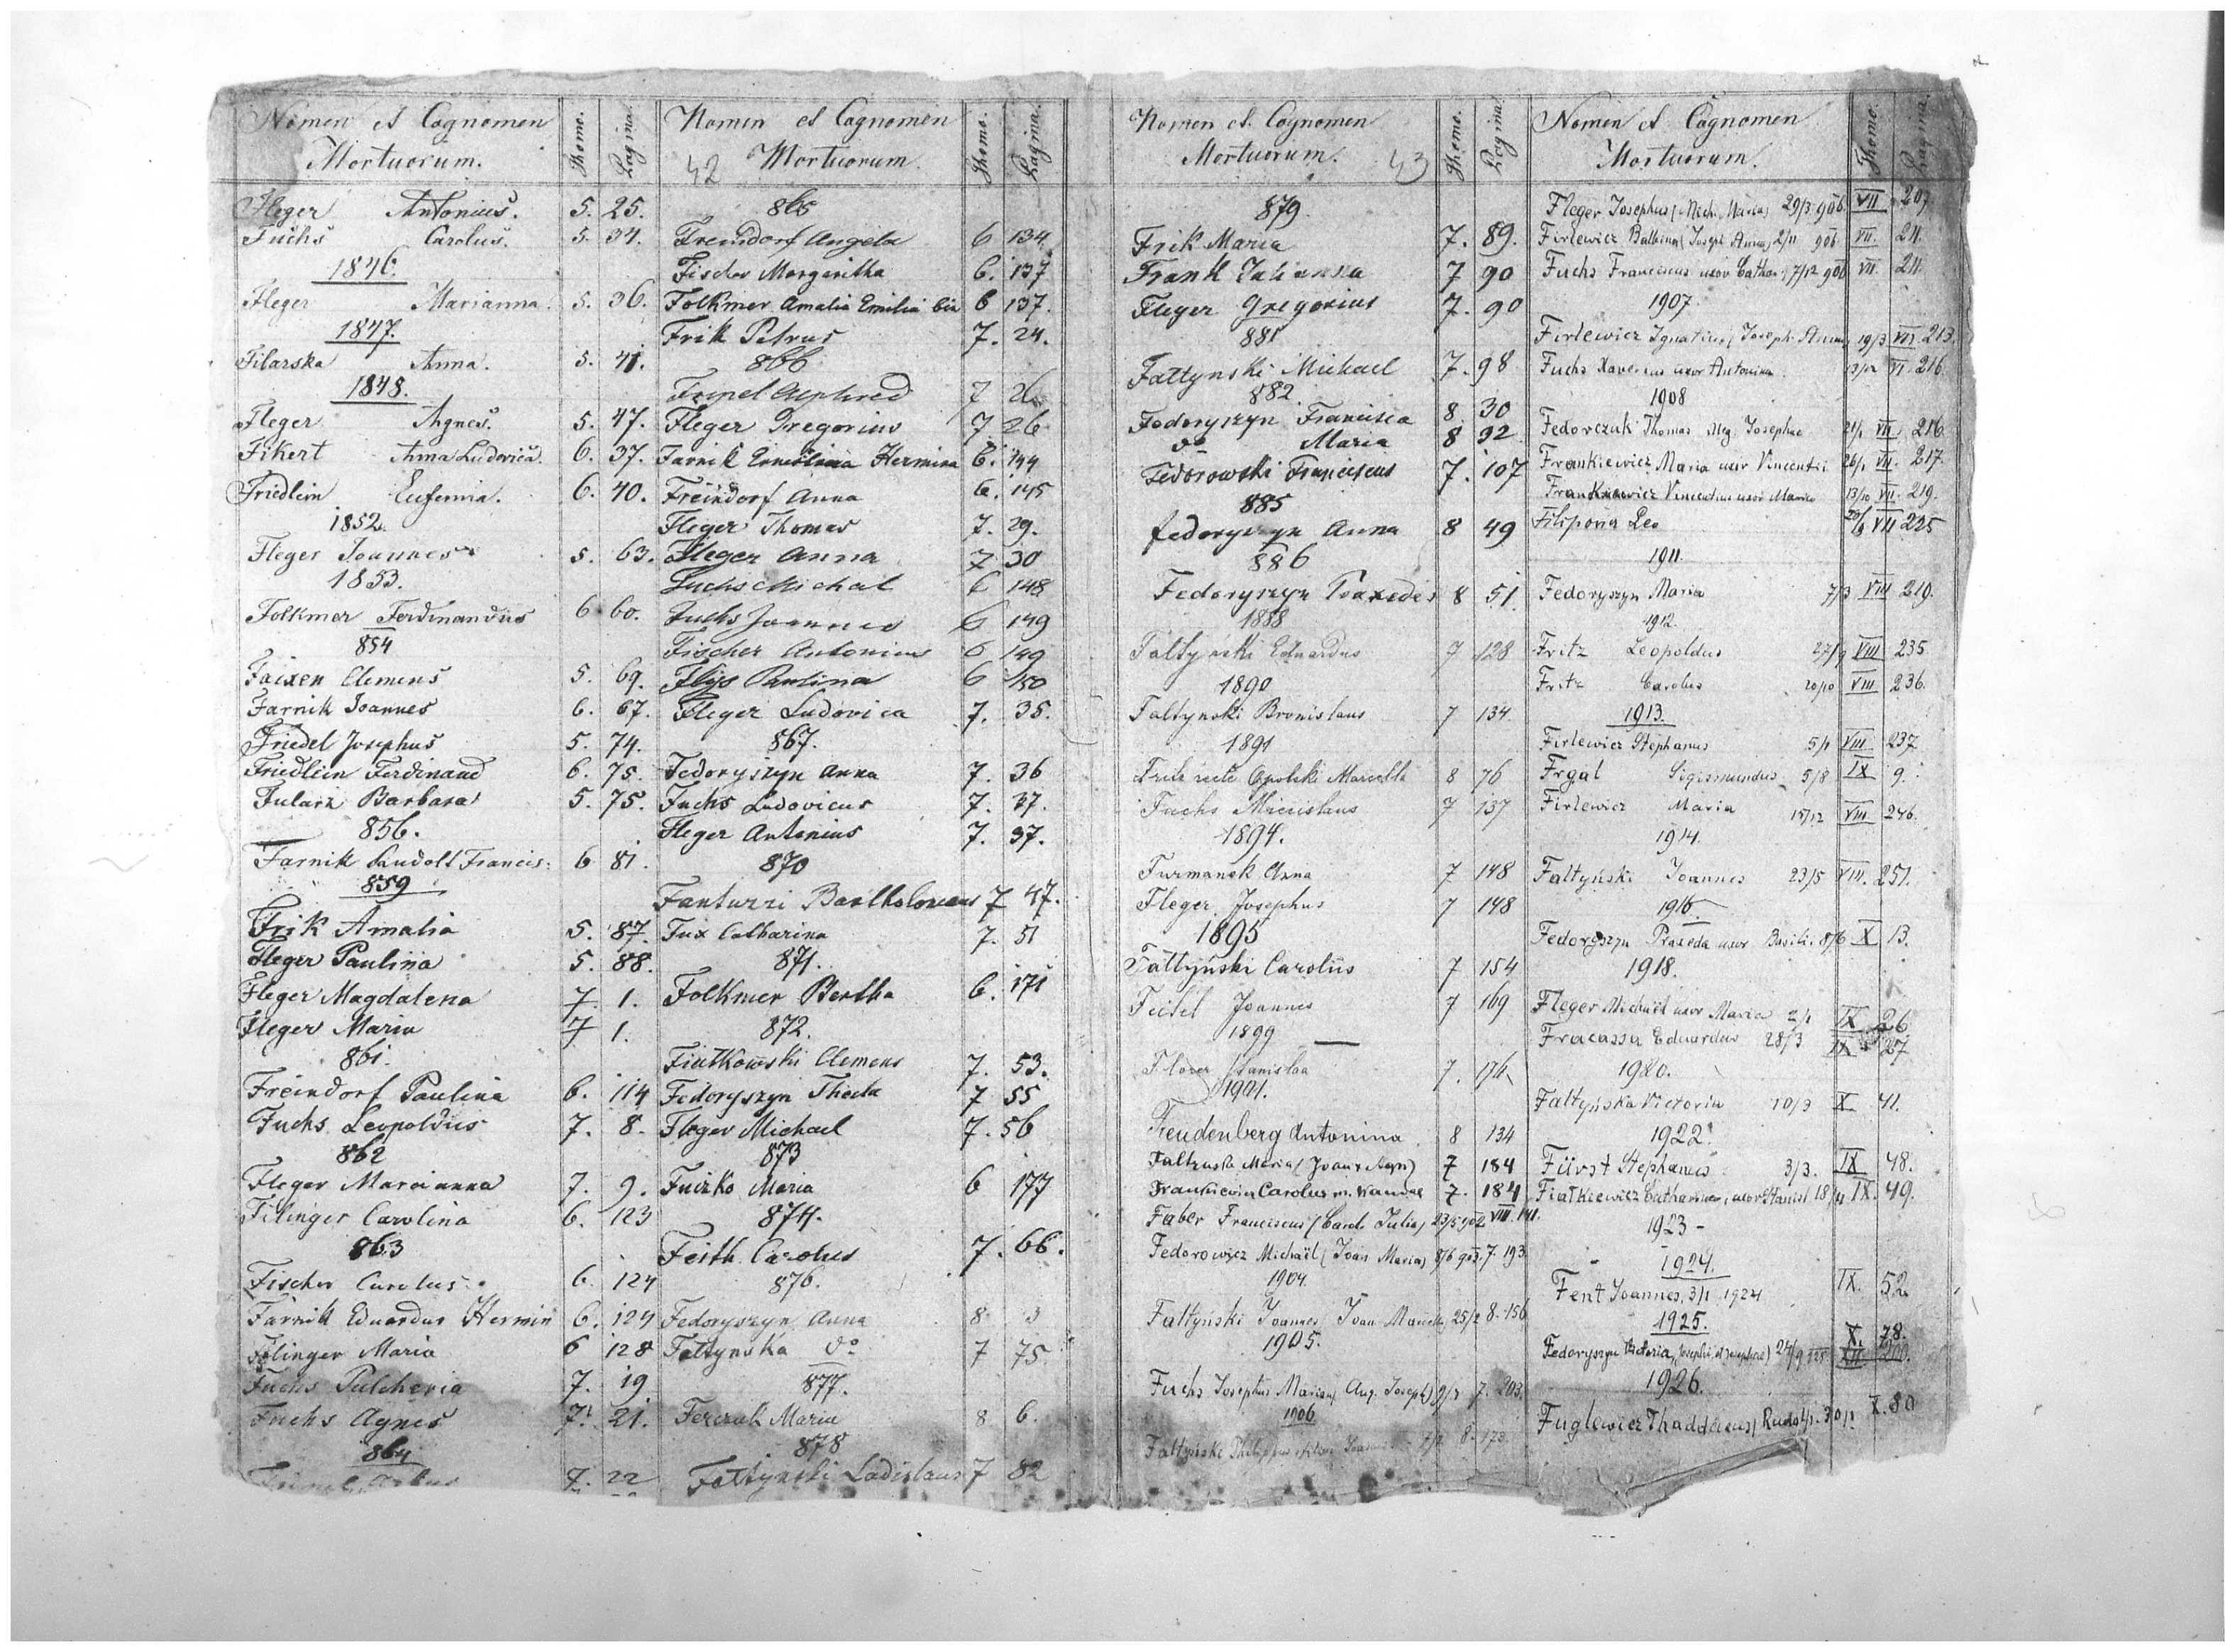 Nomen et Cognomen
Mortuorum.
Thomo.
Pagina.
Fleger Antonius. 5. 25.
Fuchs Carolus. 5. 34.
1846.
Fleger Marianna. 5. 36.
1847.
Filarska Anna. 5. 41.
1848.
Fleger Agnes. 5. 47.
Fikert Anna Ludovica. 6. 37.
Friedlein Eufemia. 6. 40.
1852.
Fleger Joannes 5. 63.
1853.
Folkmer Ferdinandus 6 60.
854
Faixen Clemens 5. 69.
Farnik Joannes 6. 67.
Friedel Josephus 5. 74.
Friedlein Ferdinand 6. 75.
Fularz Barbara 5. 75.
856.
Farnik Rudolf Francis: 6 81.
859
Frik Amalia 5. 87.
Fleger Paulina 5. 88.
Fleger Magdalena 7. 1.
Fleger Maria 7 1.
861.
Freindorf Paulina 6. 114
Fuchs Leopoldus 7. 8.
862
Fleger Marianna 7. 9.
Filinger Carolina 6. 123
863
Fischer Carolus 6. 124
Farnik Eduardus Hermin 6. 124
Filinger Maria 6 128
Fuchs Pulcheria 7. 19
Fuchs Agnes 7. 21.
864
7. 22
Nomen et Cognomen
42 Mortuorum.
Thomo.
Pagina.
865
Freindorf Angela 6 134.
Fischer Margaritha 6. 137
Folkmer Amalia Emilia 6 137.
Frik Petrus 7. 24.
866
7
Fleger Gregorius 7 26
Farnik Hermina 6. 144
Freindorf Anna 6. 145
Fleger Thomas 7. 29.
Fleger Anna 7 30
Fuchs Michal 6 148
Fuchs Joannes 6 149
Fischer Antonius 6 149
Flys Paulina 6 150
Fleger Ludovica 7. 35.
867.
Fedoryszyn Anna 7. 36
Fuchs Ludovicus 7. 37.
Fleger Antonius 7. 37.
870
Fantuzzi Bartholomaus 7 47.
Fux Catharina 7. 51
871.
Folkmer Bertha 6. 171
872.
Fiatkowski Clemens 7. 53.
Fedoryszyn Thecla 7 55
Fleger Michael 7. 56
873
Fuizko Maria 6 177
874.
Feith Carolus 7. 66.
876.
Fedoryszyn Anna 8. 3
Fałtynska do 7 75
877.
Ferczuk Maria 8 6.
878
Fałtynski Ladislaus 7 82
Nomen et Cognomen
Mortuorum. 43
Thomo.
Pagina.
879.
Frik Maria 7. 89.
Frank Julianna 7 90
Fleger Gregorius 7. 90
881
Fałtynski Michael 7. 98
882.
Fedoryszyn Francisca 8. 30
do Maria 8 32
Fedorowski Franciscus 7. 107
885
Fedoryszyn Anna 8 49
886
Fedoryszyn Praxedis 8 51.
1888
Fałtyński Eduardus 7 128
1890
Fałtynski Bronislaus 7 134.
1891
Fritz recte Marcella 8 76
Fuchs Miecislaus 7 137
1894.
Furmanek Anna 7 148
Fleger Josephus 7 148
1895
Fałtyński Carolus 7 154
Feitel Joannes 7 169
1899
7. 176
1901.
Freudenberg Antonina 8 134
Faltynska Maria (Joan x Agn) 7 184
Frankiewicz Carolus m. Wandae 7. 184
Faber Franciscus (Carol. Julia) 23/5 902 VIII. 141.
Fedorowicz Michaël (Joan Maria) 8/6 903. 7. 193.
1904.
Fałtyński Joannes Joan 25/2 8. 156
1905.
Fuchs Josephus Marian Aug. Joseph 7. 203.
1906
Fałtyński Philippus 8. 173.
Nomen et Cognomen
Mortuorum.
Thomo.
Pagina.
Fleger Josephus (Mich. Maria) 29/3 906. VII 207.
Firlewicz Balbina (Joseph Anna) 2/11 906 VII. 211.
Fuchs Franciscus uxor Cathar. 7/12 906 VII. 211.
1907.
Firlewicz Ignatius (Joseph. Anna) 19/3 VII. 213.
Fuchs Xaverius uxor Antonina 216.
1908
Fedorczuk Thomas Josephae 21/1 VII 216
Frankiewicz Maria uxor Vincentii 26/1 VII. 217.
Frankiewicz Vincentius uxor Maria 13/10 VII. 219.
Filipona Leo VII 225
1911.
Fedoryszyn Maria 7/3 VIII 219.
1912.
Fritz Leopoldus 27/9 VIII 235
Fritz Carolus 20/10 VIII 236.
1913.
Firlewicz Stephanus 5/1 VIII 237
Frgal Sigismundus 5/8 IX 9.
Firlewicz Maria 15/12 VIII 246.
1914.
Fałtyński Joannes 23/5 VIII. 251.
1916
Fedoryszyn Praxeda uxor Basili. 8/6 X 13.
1918.
Fleger Michaël uxor Maria 2/1 IX 26
Fracassa Eduardus 28/3 IX 27
1920.
Fałtyńska Victoria 10/3 X 41.
1922.
Fürst Stephanus 3/3. IX 48.
Fiatkiewicz Catharina, uxor Stanisl 18/11 IX. 49.
1923 -
1924.
Fent Joannes, 3/1 1924 IX. 52.
1925.
Fedoryszyn Victoria, (Josephi et Josephae) 24/9 925 X. 78.
1926.
Fuglewicz Thaddaeus (Rudolf. 30/1. X. 80